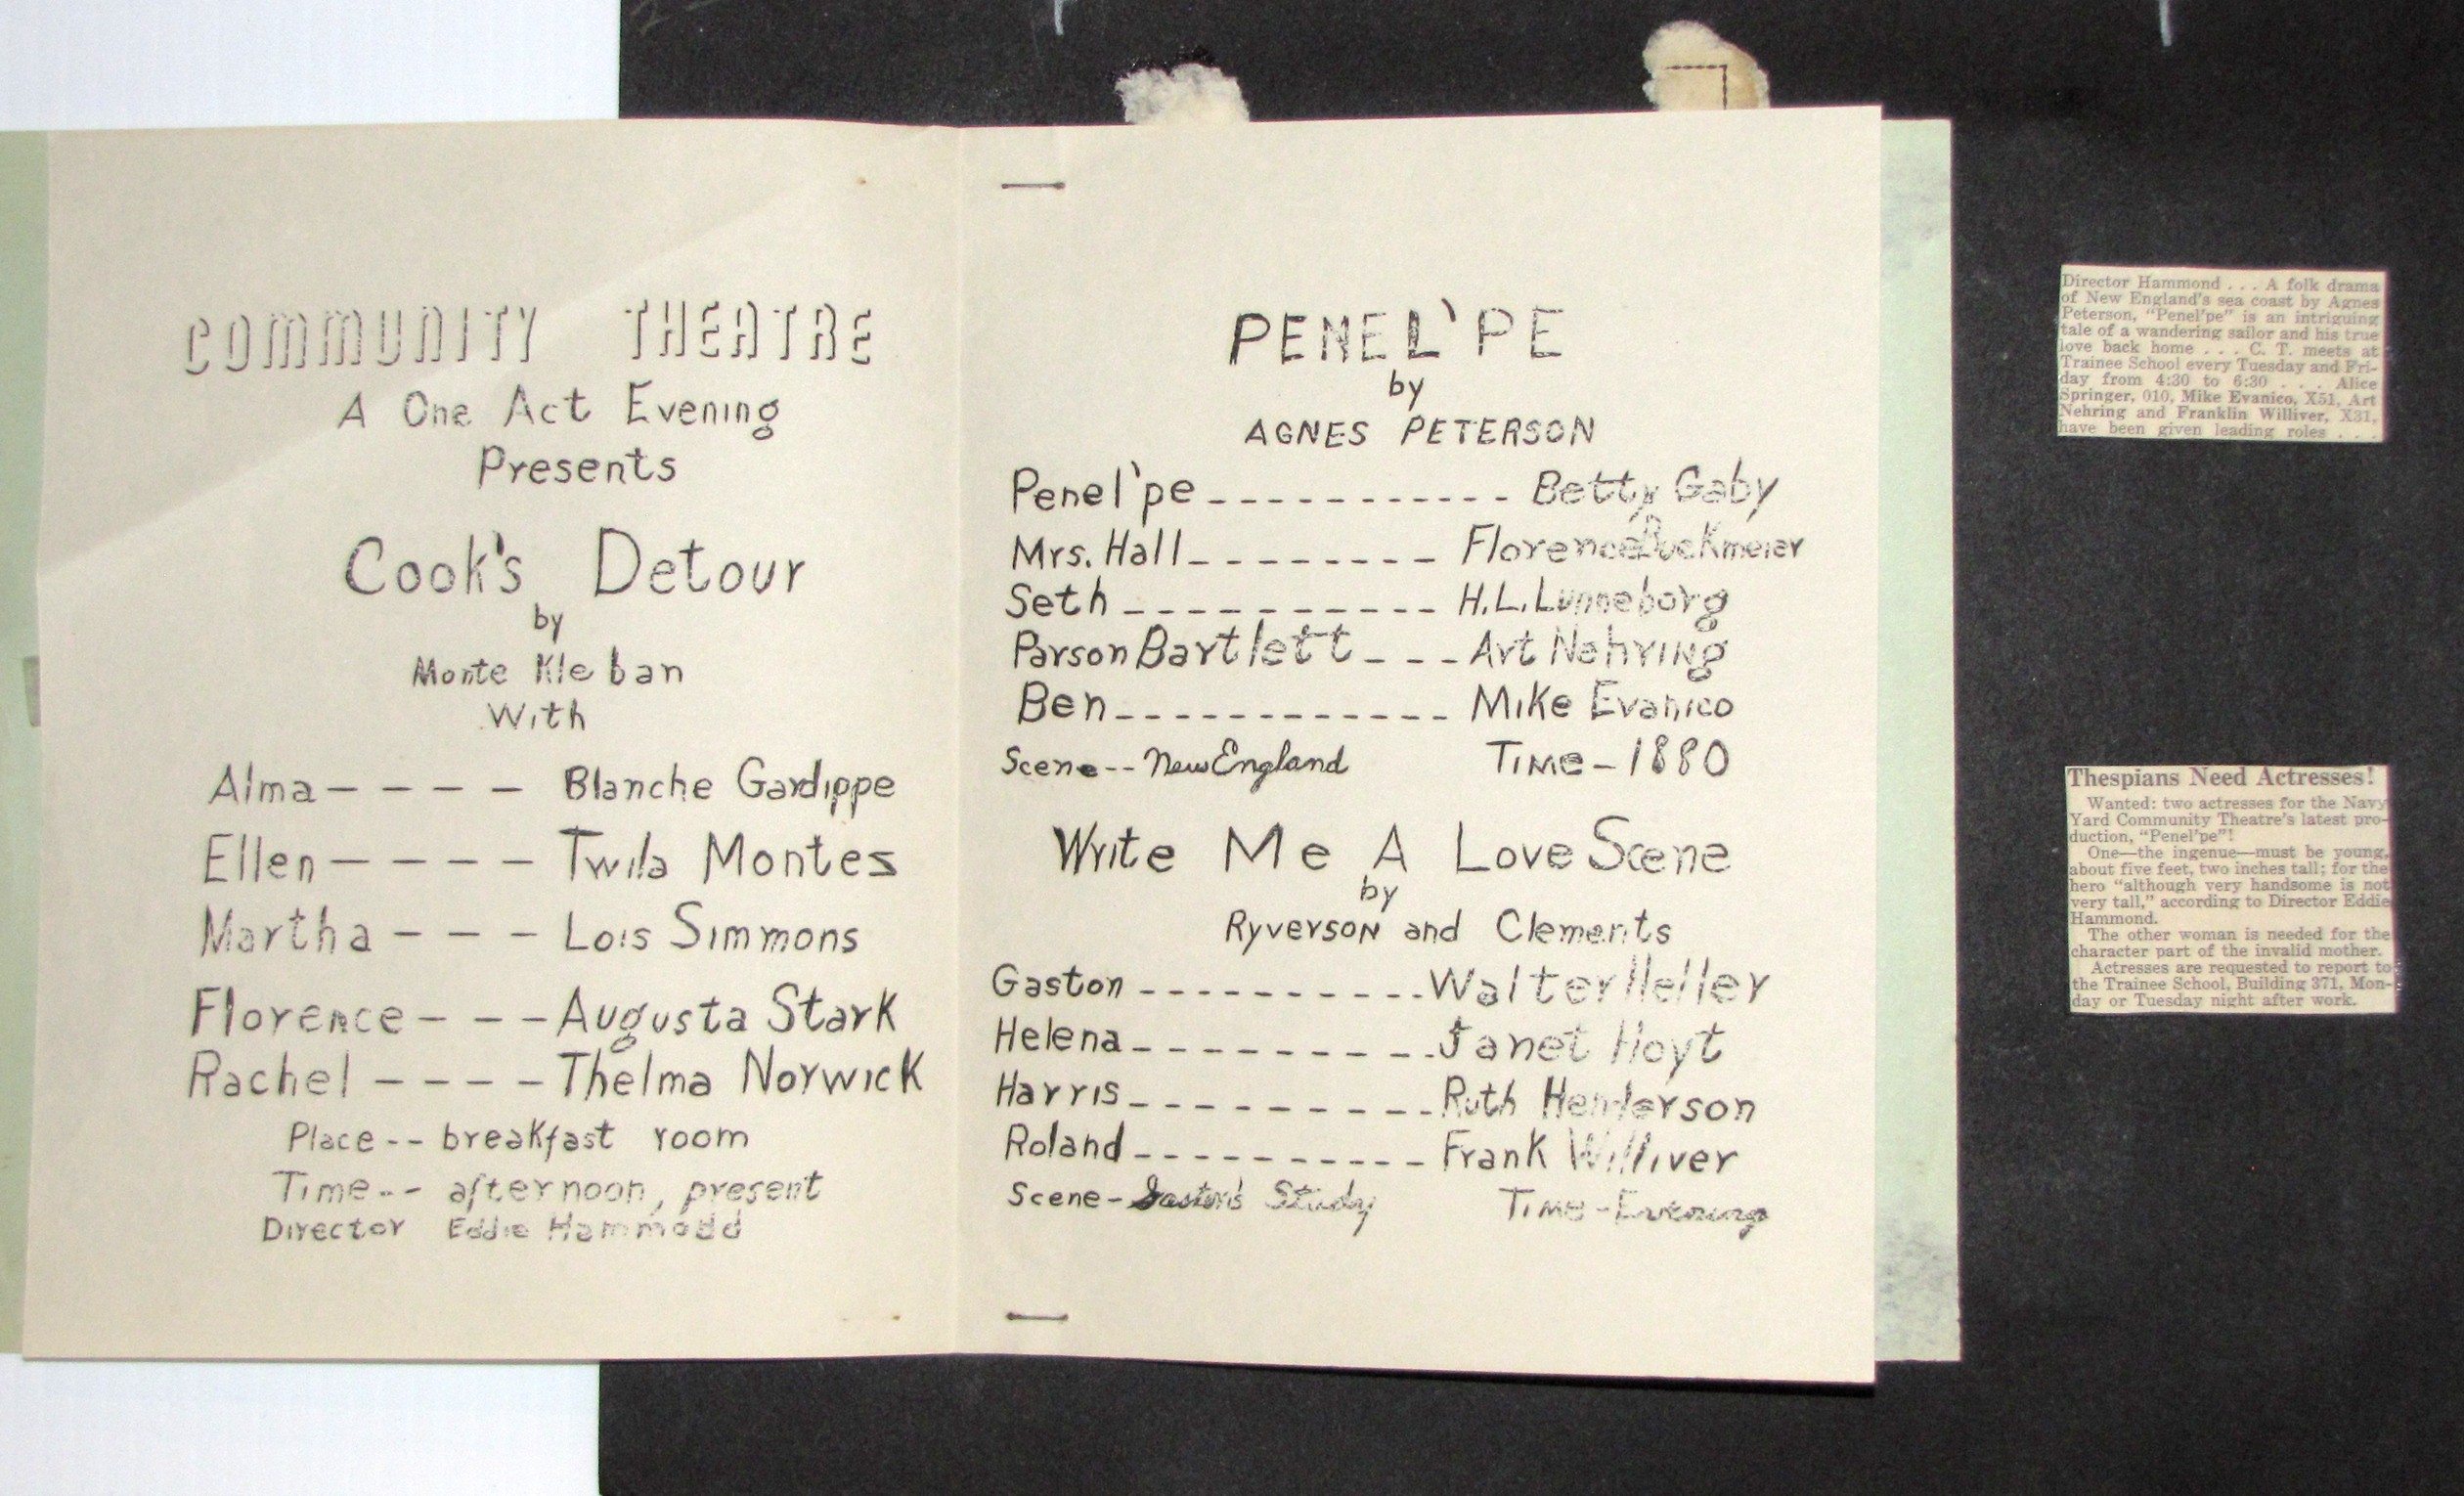 COMMUNITY THEATRE
A One Act Evening
Presents
Cook's Detour
by
Monte Kleban
With
Alma - - - - Blanche Gardippe
Ellen - - - - Twila Montes
Martha - - - Lois Simmons
Florence - - - Augusta Stark
Rachel - - - - Thelma Norwick
Place -- breakfast room
Time --- afternoon, present
Director Eddie Hammodd
PENEL'PE
by
AGNES PETERSON
Penel'pe - - - - - - - - - - - Betty Gaby
Mrs. Hall - - - - - - - - Florence Buckmeier
Seth - - - - - - - - - - H.L. Lunneborg
Parson Bartlett - - - Art Nehring
Ben - - - - - - - - - - - - Mike Evanico
Scene -- New England Time - 1880
Write Me A Love Scene
by
Ryverson and Clements
Gaston - - - - - - - - - - - Walter Heller
Helena - - - - - - - - - - Janet Hoyt
Harris - - - - - - - - - - Ruth Henderson
Roland - - - - - - - - - - - Frank Williver
Scene - Gaston's Study Time - Evening
Director Hammond . . . A folk drama
of New England's sea coast by Agnes
Peterson, "Penel'pe" is an intriguing
tale of a wandering sailor and his true
love back home . . . C. T. meets at
Trainee School every Tuesday and Fri-
day from 4:30 to 6:30 . . . Alice
Springer, 010, Mike Evanico, X51, Art
Nehring and Franklin Williver, X31,
have been given leading roles . . .
Thespians Need Actresses!
Wanted: two actresses for the Navy
Yard Community Theatre's latest pro-
duction, "Penel'pe"!
One—the ingenue—must be young,
about five feet, two inches tall; for the
hero "although very handsome is not
very tall," according to Director Eddie
Hammond.
The other woman is needed for the
character part of the invalid mother.
Actresses are requested to report to
the Trainee School, Building 371, Mon-
day or Tuesday night after work.